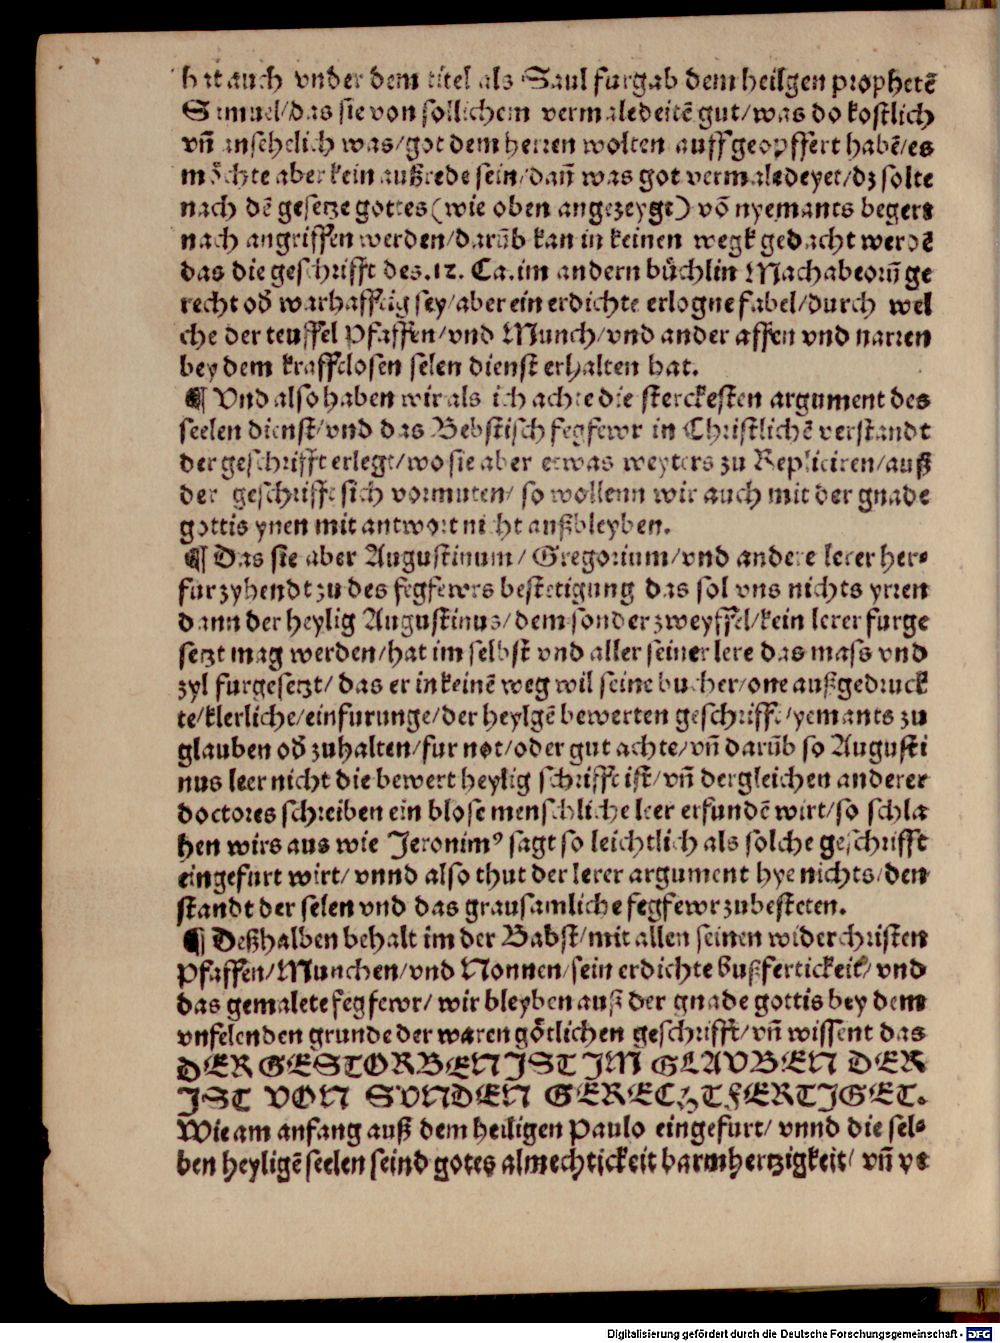 hat auch vnder dem titel als Saul furgab dem heilgen prophetē
Samuel/das sie von sollichem vermaledeitē gut/was do kostlich
vñ ansehelich was/got dem herren wolten auffgeopffert habē/es
möchte aber kein außrede sein/dañ was got vermaledeyet/dz solte
nach dē gesetze gottes (wie oben angezeygt) vō nyemants begert
nach angriffen werden/darūb kan in keinen wegk gedacht werdē
das die geschrifft des .12. Ca. im andern bůchlin Machabeorū ge
recht oď warhafftig sey/aber ein erdichte erlogne fabel/durch wel
che der teuffel Pfaffen/vnd Munch/vnd ander affen vnd narren
bey dem krafftlosen selen dienst erhalten hat.
¶ Vnd also haben wir als ich achte die sterckesten argument des
seelen dienst/vnd das Bebstisch fegfewr in Christlichē verstandt
der geschrifft erlegt/wo sie aber etwas weyters zu Repliciren/auß
der geschrifft sich vormuten/ so wollenn wir auch mit der gnade
gottis ynen mit antwort nicht außbleyben.
¶ Das sie aber Augustinum/ Gregorium/vnd andere lerer her⸗
fur zyhendt zu des fegfewrs bestetigung das sol vns nichts yrren
dann der heylig Augustinus/dem sonder zweyffel/kein lerer furge
setzt mag werden/hat im selbst vnd aller seiner lere das mass vnd
zyl furgesetzt/ das er in keinē weg wil seine bucher/one außgedruck
te/klerliche/einfurunge/der heylgē bewerten geschrifft/yemants zu
glauben oď zuhalten/fur not/oder gut achte/vñ darūb so Augusti
nus leer nicht die bewert heylig schrifft ist/vñ dergleichen anderer
doctores schreiben ein blose menschliche leer erfundē wirt/so schla
hen wirs aus wie Jeronimꝰ sagt so leichtlich als solche geschrifft
eingefurt wirt/ vnnd also thut der lerer argument hye nichts/den
standt der selen vnd das grausamliche fegfewr zubesteten.
¶ Deßhalben behalt im der Babst/mit allen seinen widerchristen
Pfaffen/Munchen/vnd Nonnen/sein erdichte bußfertickeit/ vnd
das gemalete fegfewr/ wir bleyben auß der gnade gottis bey dem
vnfelenden grunde der waren götlichen geschrifft/vñ wissent das
DER GESTORBEN IST IM GLAVBEN DER
IST VON SVNDEN GERECHTFERTIGET.
Wie am anfang auß dem heiligen Paulo eingefurt/ vnnd die sel⸗
ben heyligē seelen seind gotes almechtickeit barmhertzigkeit/ vñ ve
Digitalisierung gefördert durch die Deutsche Forschungsgemeinschaft - DFG